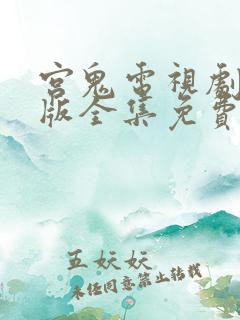 宮鬼電視劇
版全集免費
五妖妖
未經同意禁止轉載